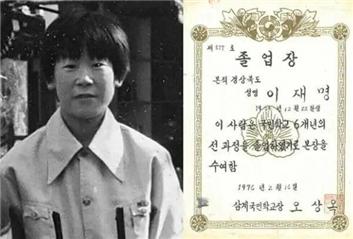 제 577 호
졸업장
본적 경상북도
성명 이재명
12월 22일생
이 사람은 국민학교 6개년의
전 과정을 졸업하였기로 본장을
수여함
1976년 2월 16일
삼계국민학교장 오상옥